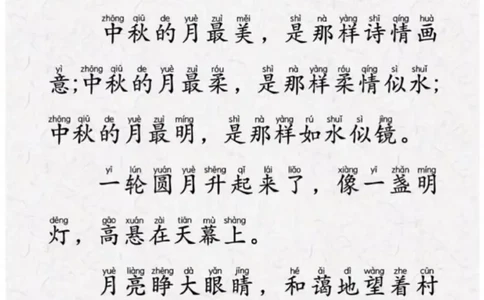 zhōng qiū de yuè zuì měi shì nà yàng shī qíng huà
中秋的月最美，是那样诗情画
yì zhōng qiū de yuè zuì róu shì nà yàng róu qíng sì shuǐ
意;中秋的月最柔，是那样柔情似水;
zhōng qiū de yuè zuì míng shì nà yàng rú shuǐ sì jìng
中秋的月最明，是那样如水似镜。
yī lún yuán yuè shēng qǐ lái liǎo xiàng yī zhǎn míng
一轮圆月升起来了，像一盏明
dēng gāo xuán zài tiān mù shàng
灯，高悬在天幕上。
yuè liàng zhēng dà yǎn jīng hé ǎi dì wàng zhe cūn
月亮睁大眼睛，和蔼地望着村